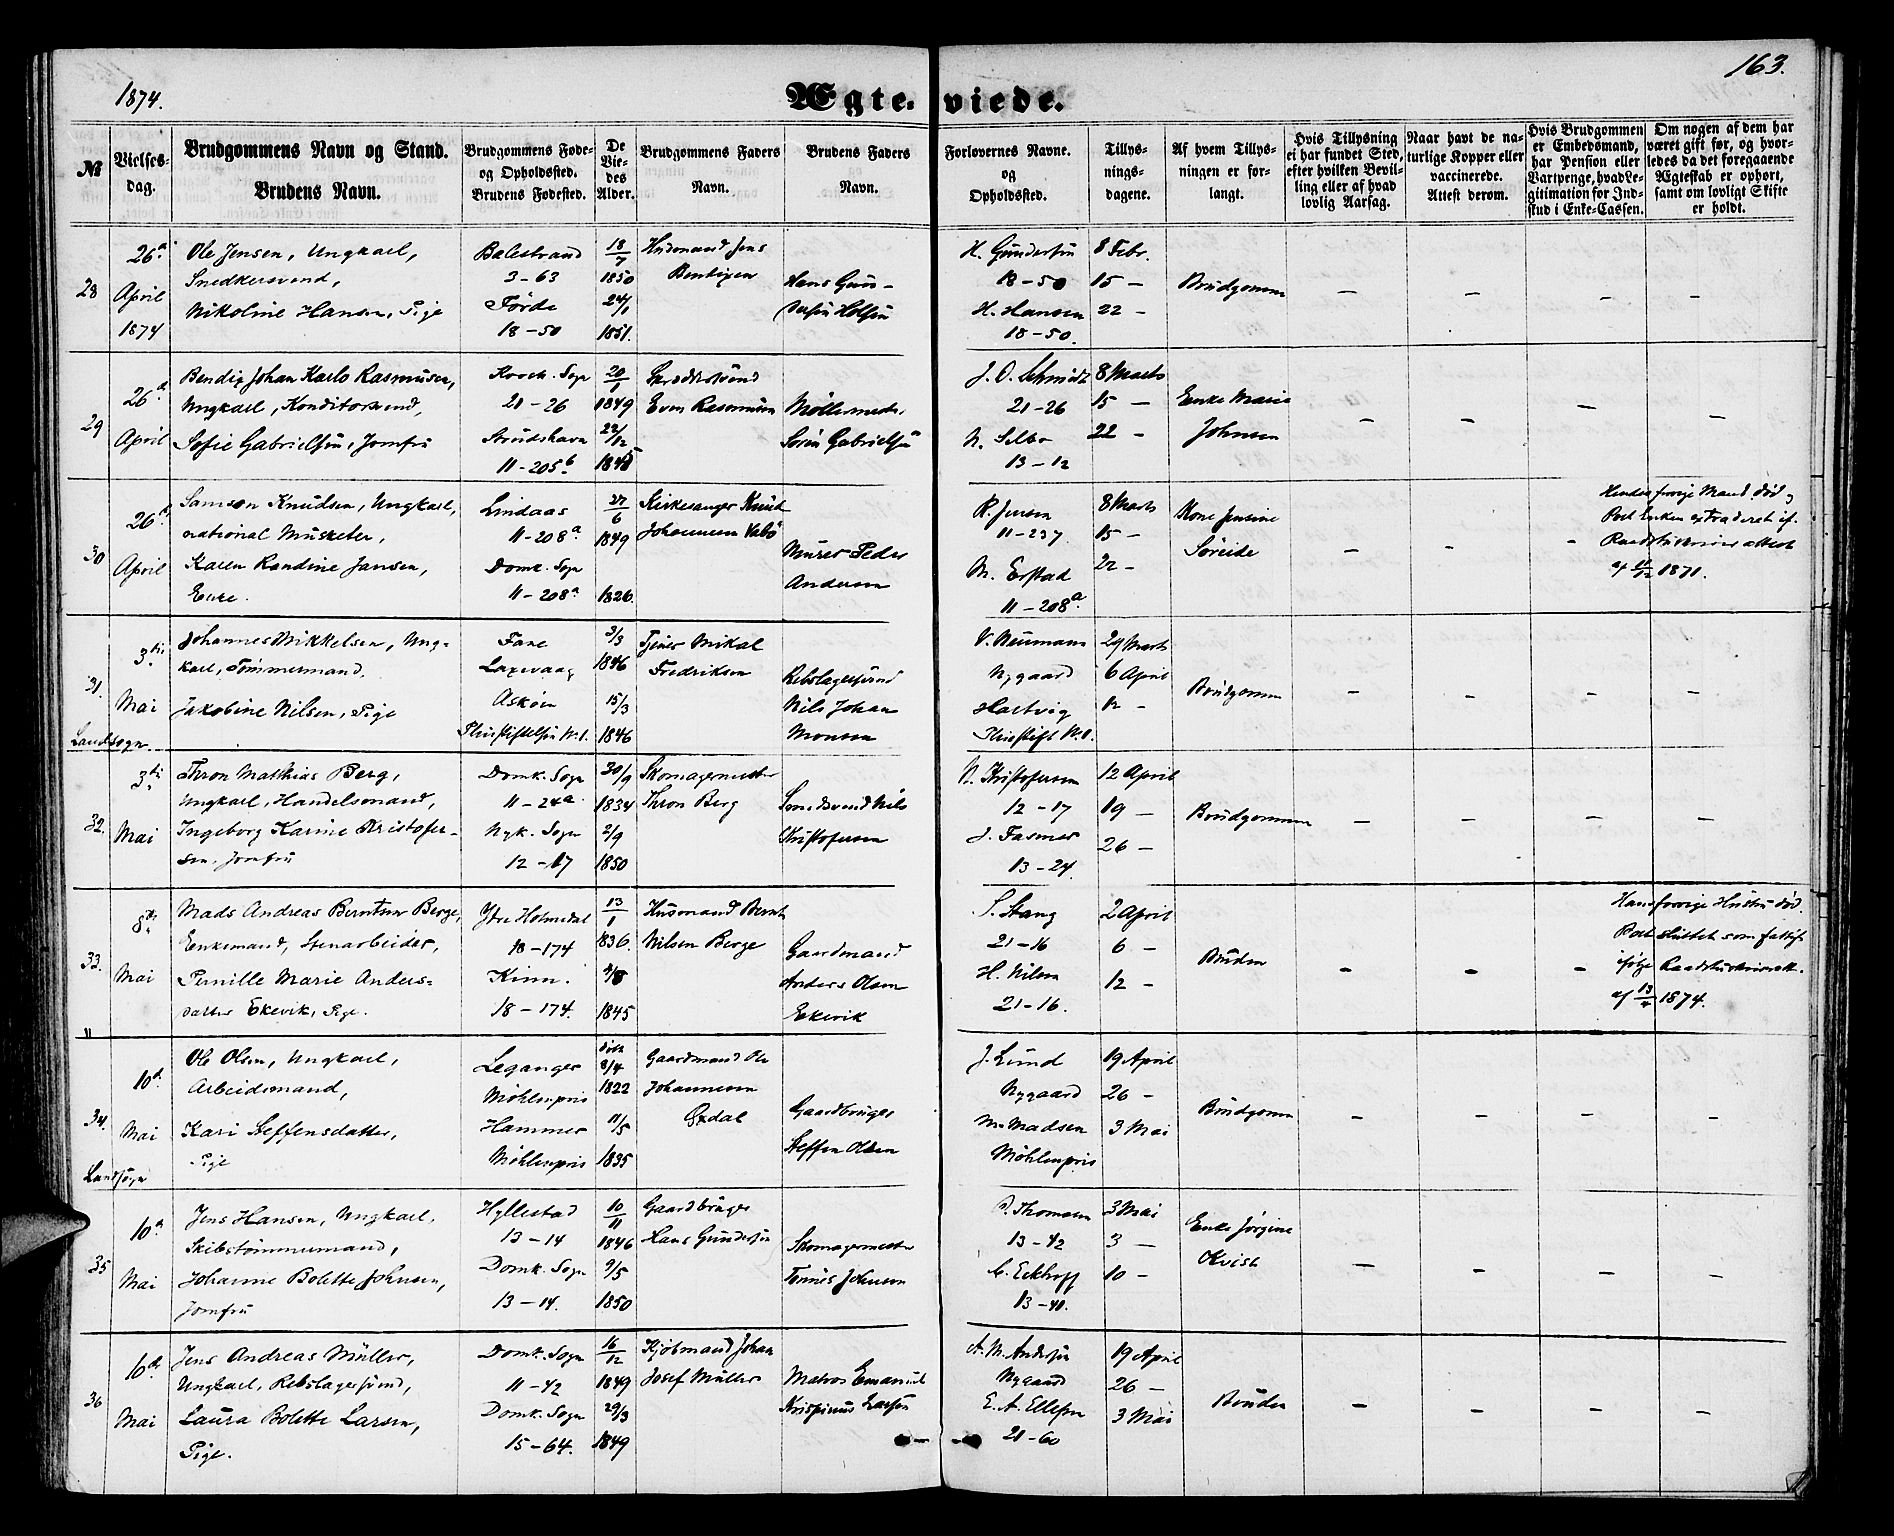 163.
1874.
Ægte- viede.
№
Vielses-
dag.
Brudgommens Navn og Stand.
Brudens Navn.
Brudgommens Føde-
og Opholdssted.
Brudens Fødested.
De
Vie-
des
Alder.
Brudgommens Faders
Navn.
Brudens Faders
Navn.
Forlovernes Navne.
og
Opholdssted.
Tillys-
nings-
dagene.
Af hvem Tillys-
ningen er for-
langt.
Hvis Tillysning
ei har fundet Sted,
efter hvilken Bevil-
ling eller af hvad
lovlig Aarsag.
Naar havt de na-
turlige Kopper eller
vaccinerede.
Attest derom.
Hvis Brudgommen
er Embedsmand,
har Pension eller
Vartpenge, hvad Le-
gitimation for Ind-
skud i Enke-Cassen.
Om nogen af dem har
været gift før, og hvor-
ledes da det foregaaende
Ægteskab er ophørt,
samt om lovligt Skifte
er holdt.
28
26de
April
1874
Ole Jensen, Ungkarl,
Snedkersvend,
Nikoline Hansen, Pige
Balestrand
3-63
Førde
18-50
18/7
1850
24/1
1851.
Husmand Jens
Bentsen
Hans Gun-
H. Gundersen
18-50
H. Hansen
18-50.
8 Febr.
15 -
22 -
Brudgomm
-
-
-
-
29
26de
April
Bendix Johan Karlo Rasmusen,
Ungkarl, Konditorsvend,
Sofie Gabrielsen, Jomfru
Korsk. Sogn
21-26
11-205b
20/1
1849
22/12
Even Rasmusen
Møllermester
Søren Gabrielsen
J. O. Schmidt
21-26
N. Selbo
13-12
8 Marts
15 -
22 -
Enke Marie
Johnsen
-
-
-
-
30
26de
April
Samson Knudsen, Ungkarl,
national Musketer,
Karen Randine Jansen,
Enke.
Lindaas
11-208a
Domk. Sogn
11-208a
27/6
1849
1826.
Kirkesanger Knud
Johannesen
Murer Peder
Andersen
R. Jensen
11-237
M. Erstad
11-208a.
8 Marts
15 -
22 -
Kone Jensine
Søreide
-
-
-
Hendes forrige Mand død,
Boet Enken extraderet if.
1871.
31.
3die
Mai
Landsogn
Johannes Mikkelsen, Ung-
karl, Tømmermand.
Jakobine Nilsen, Pige
Fane
Laxevaag
Askøen
3/3
1846
15/3
1846
Tjener Mikal
Fredriksen
Rebslagersvend
Nils Johan
Monsen
V. Neumann
Nygaard
Hartvig
29 Marts
6 April
12 -
Brudgomm
-
-
-
-
32.
3die
Mai
Thron Matthias Berg,
Ungkarl, Handelsmand,
Ingeborg Karine Kristofer-
sen, Jomfru
Domk. Sogn
11-24a
Nyk. Sogn
12-17
30/9
1834
2/9
1850
Skomagermester
Thron Berg
Smedsvend Nils
Kristofersen
N. Kristofersen
12-17
J. Fasmer
13-24.
12 April
19 -
26 -
Brudgomm
-
-
-
-
33.
8de
Mai
Mads Andreas Berntsen Berge,
Enkemand, Stenarbeider,
Pernille Marie Anders-
datter Ekevik, Pige.
Ytre Holmedal
18-174
Kinn.
18-174.
13/1
1836.
1845
Husmand Bernt
Nilsen Berge
Gaardmand
Anders Olsen
Ekevik
S. Stang
21-16
H. Nilsen
21-16.
2 April
6 -
12 -
Bruden
-
-
-
Hans forrige Hustru død.
Boet sluttet som fattigt
ifølge
af 13/4 1874.
34.
10de
Mai
Landsogn
Ole Olsen, Ungkarl,
Arbeidsmand,
Kari Steffensdatter,
Pige
Leganger
Møhlenpris
Hammer
Møhlenpris
døbt
8/4
1822
11/5
1835
Gaardmand Ole
Johannesen
Gaardbruger
Steffen Olsen
J. Lund
Nygaard
M. Madsen
Møhlenpris
19 April
26 -
3 Mai
Brudgomm
-
-
-
-
35
10de
Mai
Jens Hansen, Ungkarl,
Skibstømmermand,
Johanne Bolette Johnsen,
Jomfru
Hyllestad
13-14
Domk. Sogn
13-14.
10/11
1846
9/5
1850
Gaardbruger
Hans Gundersen
Skomagermester
Tønnes Johnson
D. Thomsen
13-42
C. Eckhoff
13-41.
3 Mai
3 -
10 -
Enke Jørgine
Kvist
-
-
-
-
36
10de
Mai
Jens Andreas Müller,
Ungkarl, Rebslagersvend,
Laura Bolette Larsen,
Pige.
Domk. Sogn
11-42
Domk. Sogn
15-64.
16/12
1849
29/3
1849
Kjøbmand Johan
Josef Müller
Matros Emanuel
Krispinus Larsen
A. M. Andersen
Nygaard
E. A. Ellefsen
21-60
19 April
26 -
3 Mai
Bruden
-
-
-
-